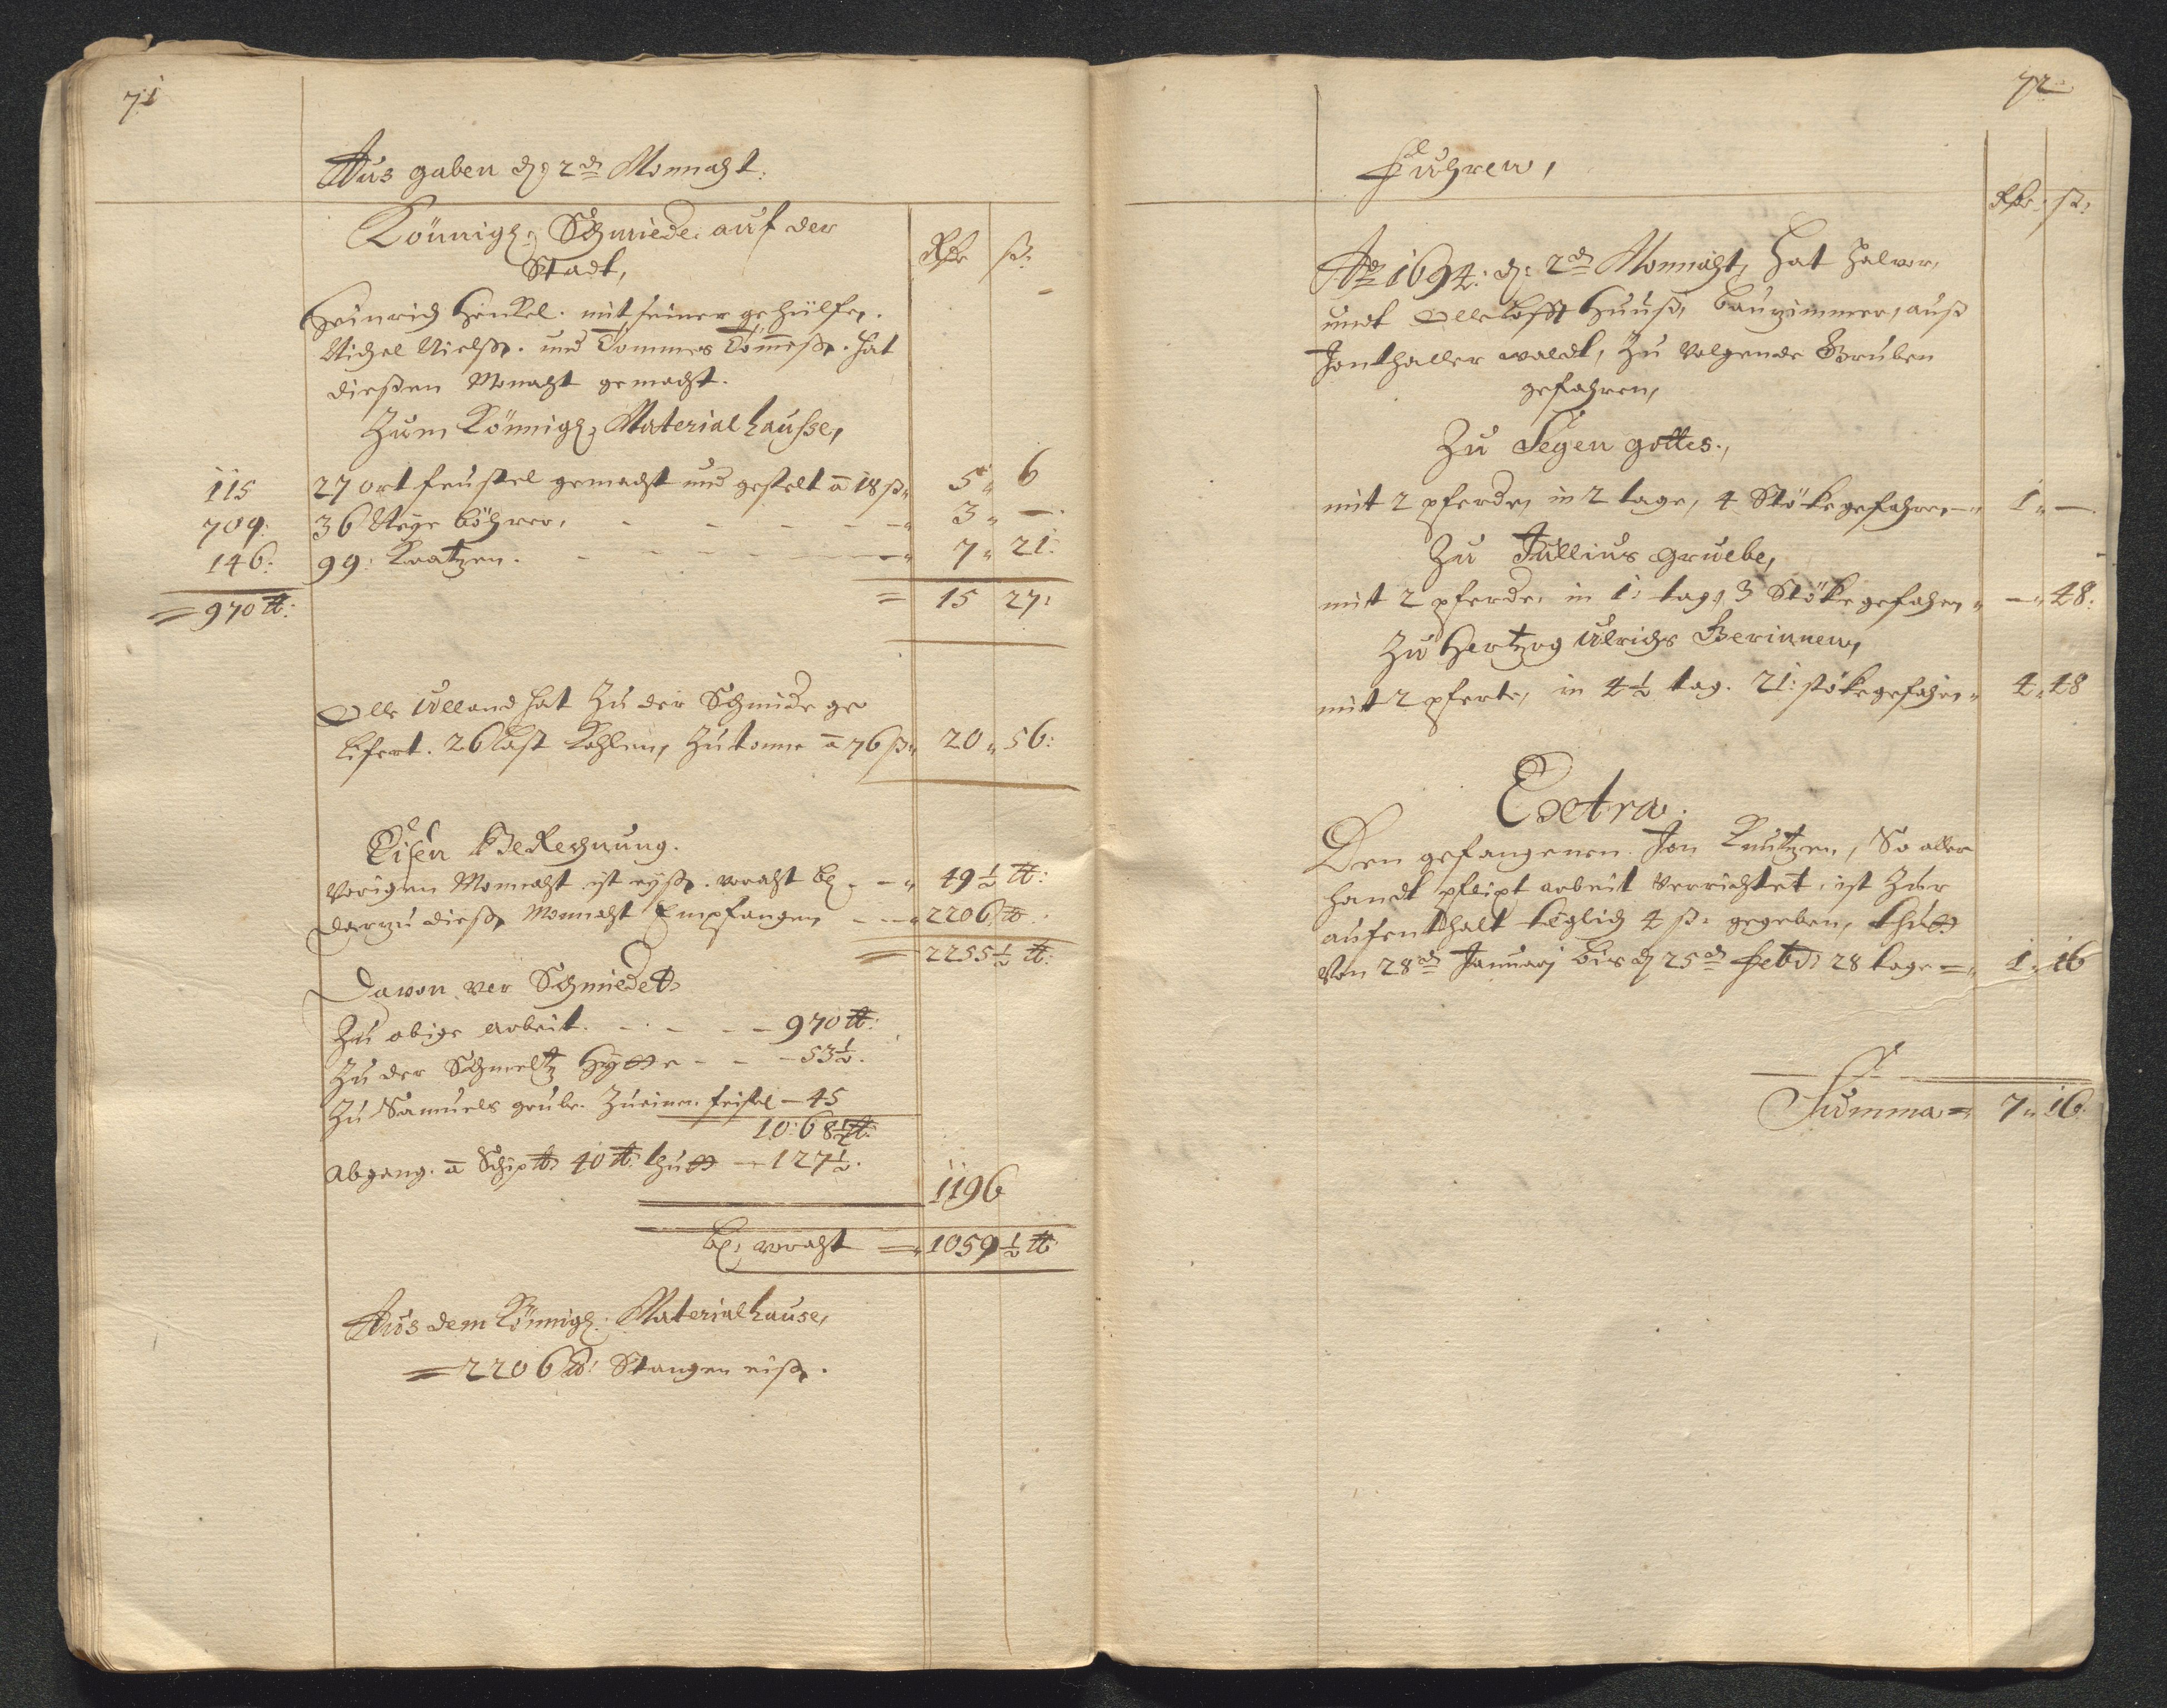 71
Aus gaben dß 2d Monnaht.
Königl: Schmiede auf der
Stadt,
Rdr ß:
Heinrich Henkel. mit seiner gehülfen.
Nickel Nielß. und Tommes Tommeß. hat
dießen Monaht gemacht.
Zum Königl: Material hausse,
115 27 ort feustel gemacht und gestelt à 18 ß" 5" 6
709: 36 Neye böhrer, - - - - - " 3" —
146: 99: Kratzen. - - - - - " 7" 21:
= 970 ℔: = 15 27:
Olle Ulland hat Zu der Schmide ge
lifert. 26 Last Kohlen, Zu tonne à 76 ß" 20" 56:
Eisen BeRechnung.
Vorigen Monnaht ist eyß. vraht bl. - " 49 ½ ℔:
darzu dieß Monnaht Empfangen - - " 2206 ℔:
= 2255 ½ ℔:
Davon ver Schmiedet
Zu obige arbeit. - - - - 970 ℔:
Zu der Schmeltz Hytte - - - 53 ½.
Zu Samuels grube. Zu einen feistel - 45
10:68 ½ ℔:
Abgang. à Schip℔ 40 ℔: thutt - 127 ½.
1196
bl: vraht = 1059 ½ ℔
Aus dem Königl: Material hause,
= 2206 ℔: Stangen eiß.
72
Fuhren,
Rdr: ß:
Ao 1694: d: 2d Monnaht, hat Halvor,
undt Olle Lofft Huuß, bauzimmer, auß
Jonthaller waldt, Zu Volgende Gruben
gefahren,
Zu Segen gottes.,
mit 2 pferde, in 2 tage, 4 Stöke gefahren - " 1" —
Zu Jullius gruebe,
mit 2 pferde, in 1: tag, 3 Stöke gefahren " -" 48:
Zu Hertzog Ulrichs Berinnen,
mit 2 pferte, in 4 ½ tag. 21: stöke gefahren " 4" 48
Extra.
Den gefangenen. Jon Knutzen, So aller
handt pflipt arbeit Verrichtet, ist Zur
aufenthalt teglich 4 ß: gegeben, thutt
Von 28d Januarj bis d 25d Feb: 28 tage =" 1" 16
Summa =" 7" 16: